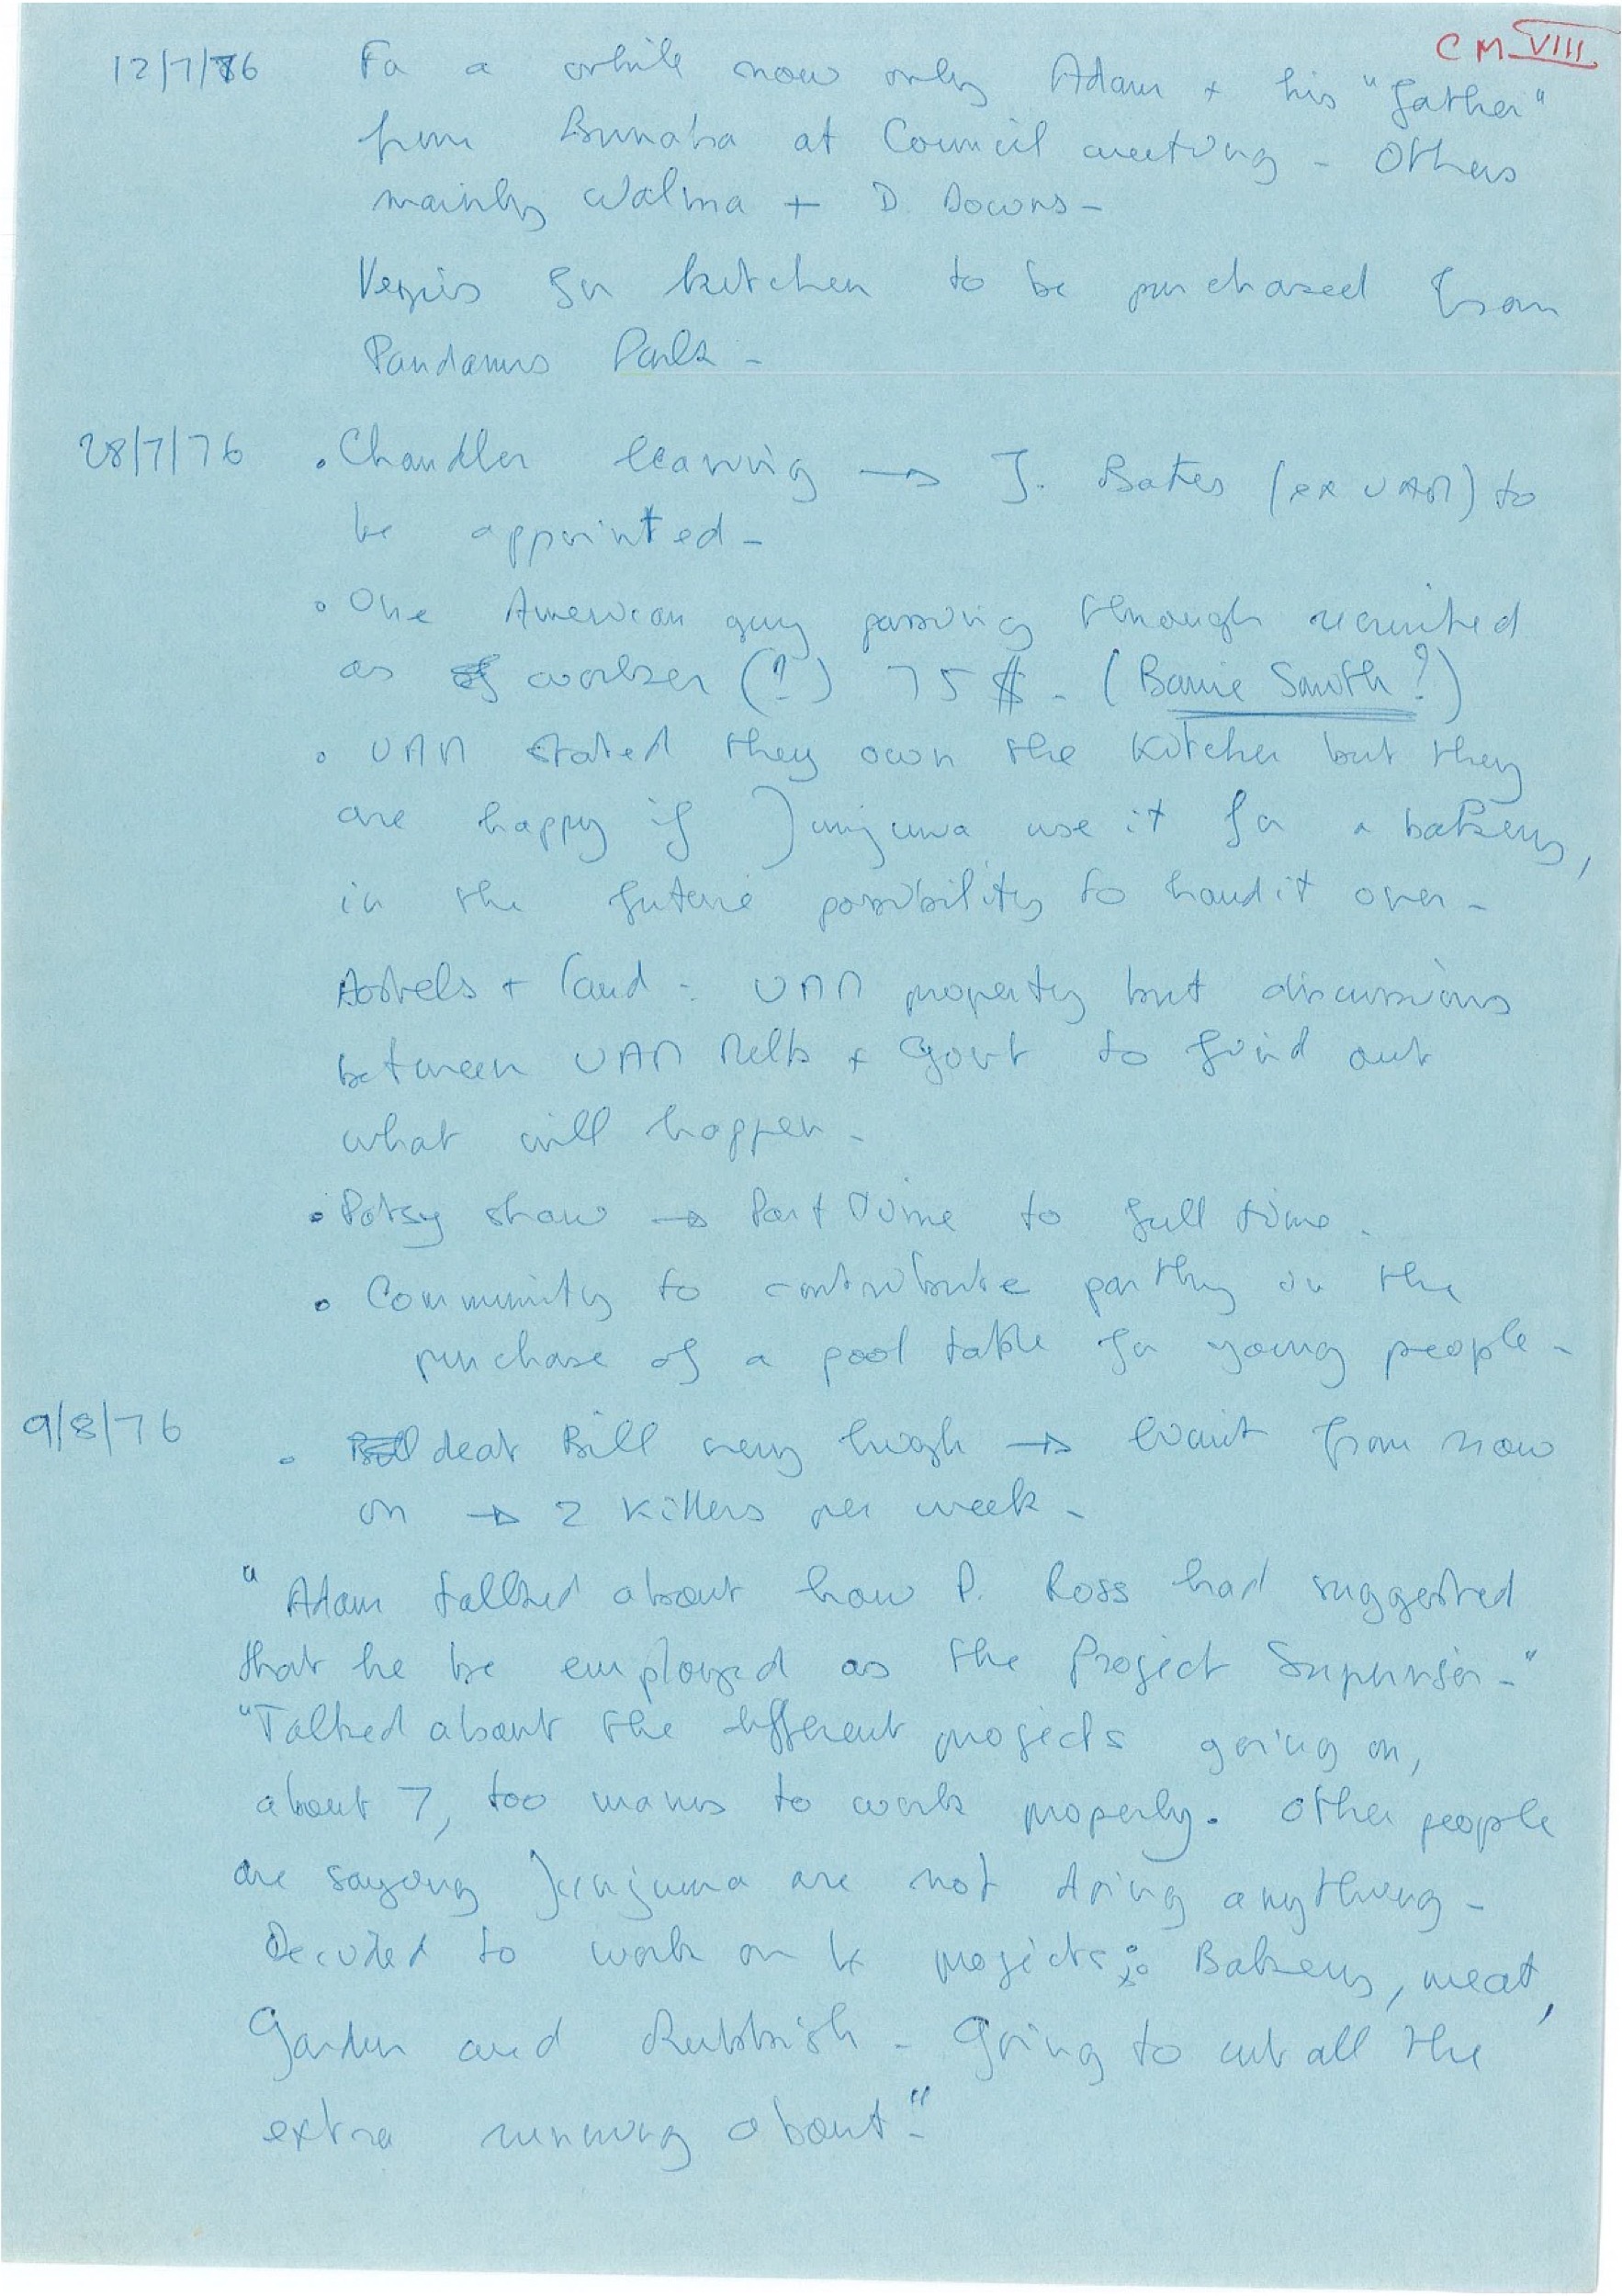 CM VIII
12/7/76 For a while now only Adam + his "father"
from Bunaba at Council meeting - Others
mainly Walma + D. Downs -
Vegies for kitchen to be purchased from
Pandanus Park -
28/7/76 • Chandler leaving → J. Bates (ex UAM) to
be appointed -
• One American guy passing through recruited
as worker (?) 75 $ - (Barrie Smith?)
• UAM stated they own the kitchen but they
are happy if Junjuwa use it for a bakery,
in the future possibility to hand it over -
Hostels + land : UAM property but discussions
between UAM Melb + Govt to find out
what will happen -
• Patsy Shaw → Part Time to full time.
• Community to contribute partly in the
purchase of a pool table for young people -
9/8/76 • Meat Bill very high → Want from now
on → 2 killers per week -
"Adam talked about how P. Ross had suggested
that he be employed as the Project Supervisor -"
"Talked about the different projects going on,
about 7, too many to work properly. Other people
are saying Junjuwa are not doing anything -
Decided to work on 4 projects: Bakery, meat,
Garden and Rubbish - Going to cut all the
extra running about -"